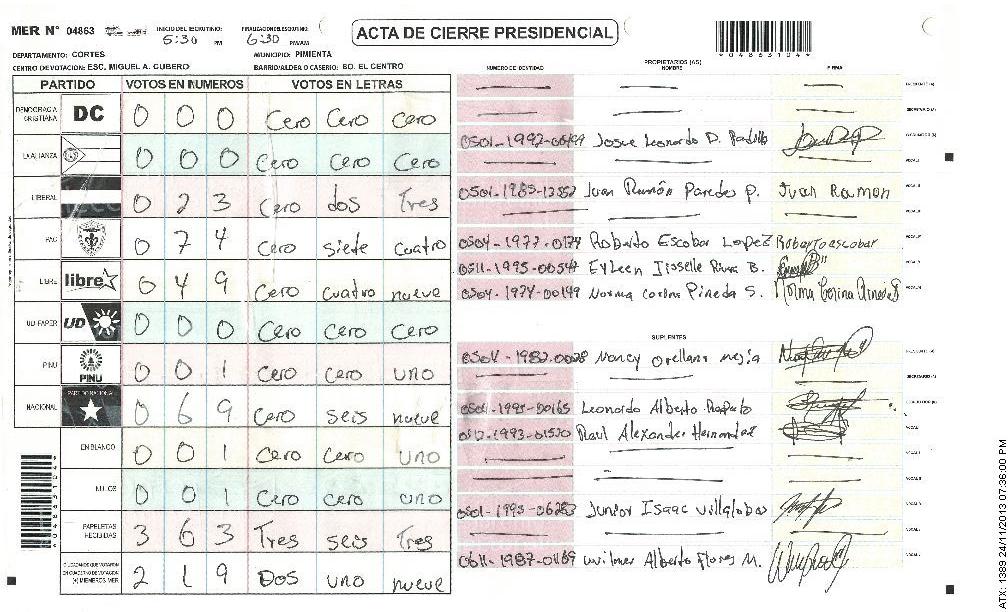 MER N° 04863 INICIO DEL ESCRUTINIO: 5:30 PM FINALIZACION ESCRUTINIO: 6:30 PM/AM
ACTA DE CIERRE PRESIDENCIAL
*04863104*
DEPARTAMENTO: CORTES MUNICIPIO: PIMIENTA
CENTRO DE VOTACION: ESC. MIGUEL A. CUBERO BARRIO/ALDEA O CASERIO: BO. EL CENTRO
PARTIDO VOTOS EN NUMEROS VOTOS EN LETRAS
DEMOCRACIA CRISTIANA DC 0 0 0 Cero Cero cero
LA ALIANZA 0 0 0 Cero Cero Cero
LIBERAL 0 2 3 Cero dos Tres
PAC 0 7 4 Cero siete cuatro
LIBRE libre 0 4 9 Cero cuatro nueve
UD-FAPER UD 0 0 0 Cero Cero Cero
PINU PINU 0 0 1 Cero cero uno
NACIONAL PARTIDO NACIONAL 0 6 9 Cero seis nueve
EN BLANCO 0 0 1 Cero Cero uno
NULOS 0 0 1 Cero cero uno
PAPELETAS RECIBIDAS 3 6 3 Tres seis Tres
CIUDADANOS QUE VOTARON EN CUADERNO DE VOTACION (+) MIEMBROS MER 2 1 9 Dos uno nueve
PROPIETARIOS (AS)
NUMERO DE IDENTIDAD NOMBRE FIRMA
Josue Leonardo D.
0501-1985-13552 Juan Ramón Paredes P. Juan Ramon
Roberto Escobar Lopez Roberto escobar
Eyleen Jisselle B.
0504-1974-00149 Norma Pineda S.
SUPLENTES
Nancy Orellana mejia
Leonardo Alberto
Raul Alexander Hernandez
Junior Isaac Villalobos
Wilmer Alberto Flores M.
ATX: 1389 24/11/2013 07:36:00 PM